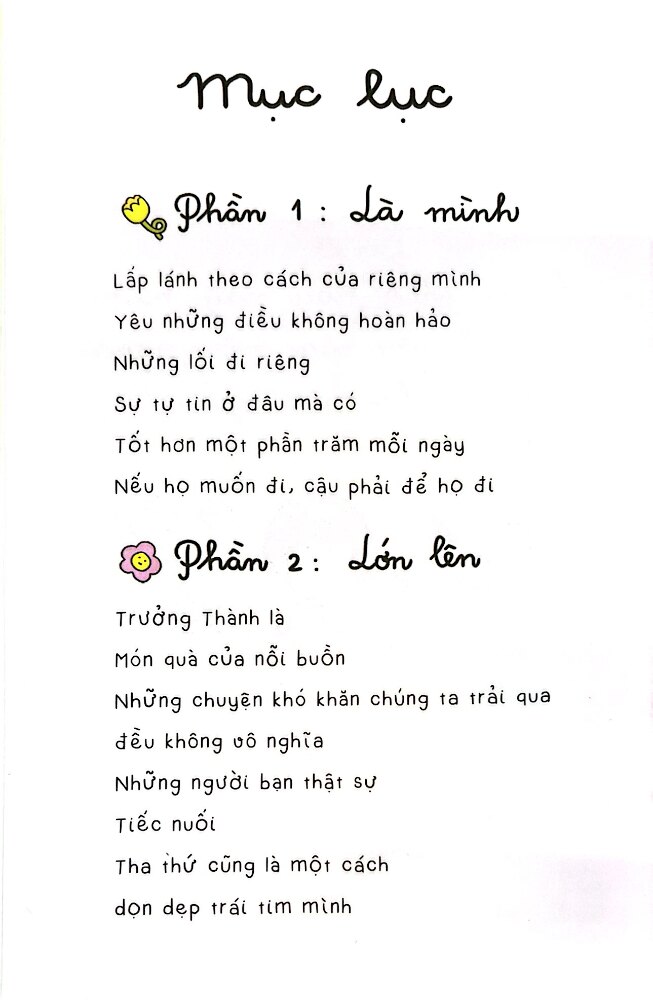 Mục lục
Phần 1 : Là mình
Lấp lánh theo cách của riêng mình
Yêu những điều không hoàn hảo
Những lối đi riêng
Sự tự tin ở đâu mà có
Tốt hơn một phần trăm mỗi ngày
Nếu họ muốn đi, cậu phải để họ đi
Phần 2 : Lớn lên
Trưởng Thành là
Món quà của nỗi buồn
Những chuyện khó khăn chúng ta trải qua
đều không vô nghĩa
Những người bạn thật sự
Tiếc nuối
Tha thứ cũng là một cách
dọn dẹp trái tim mình